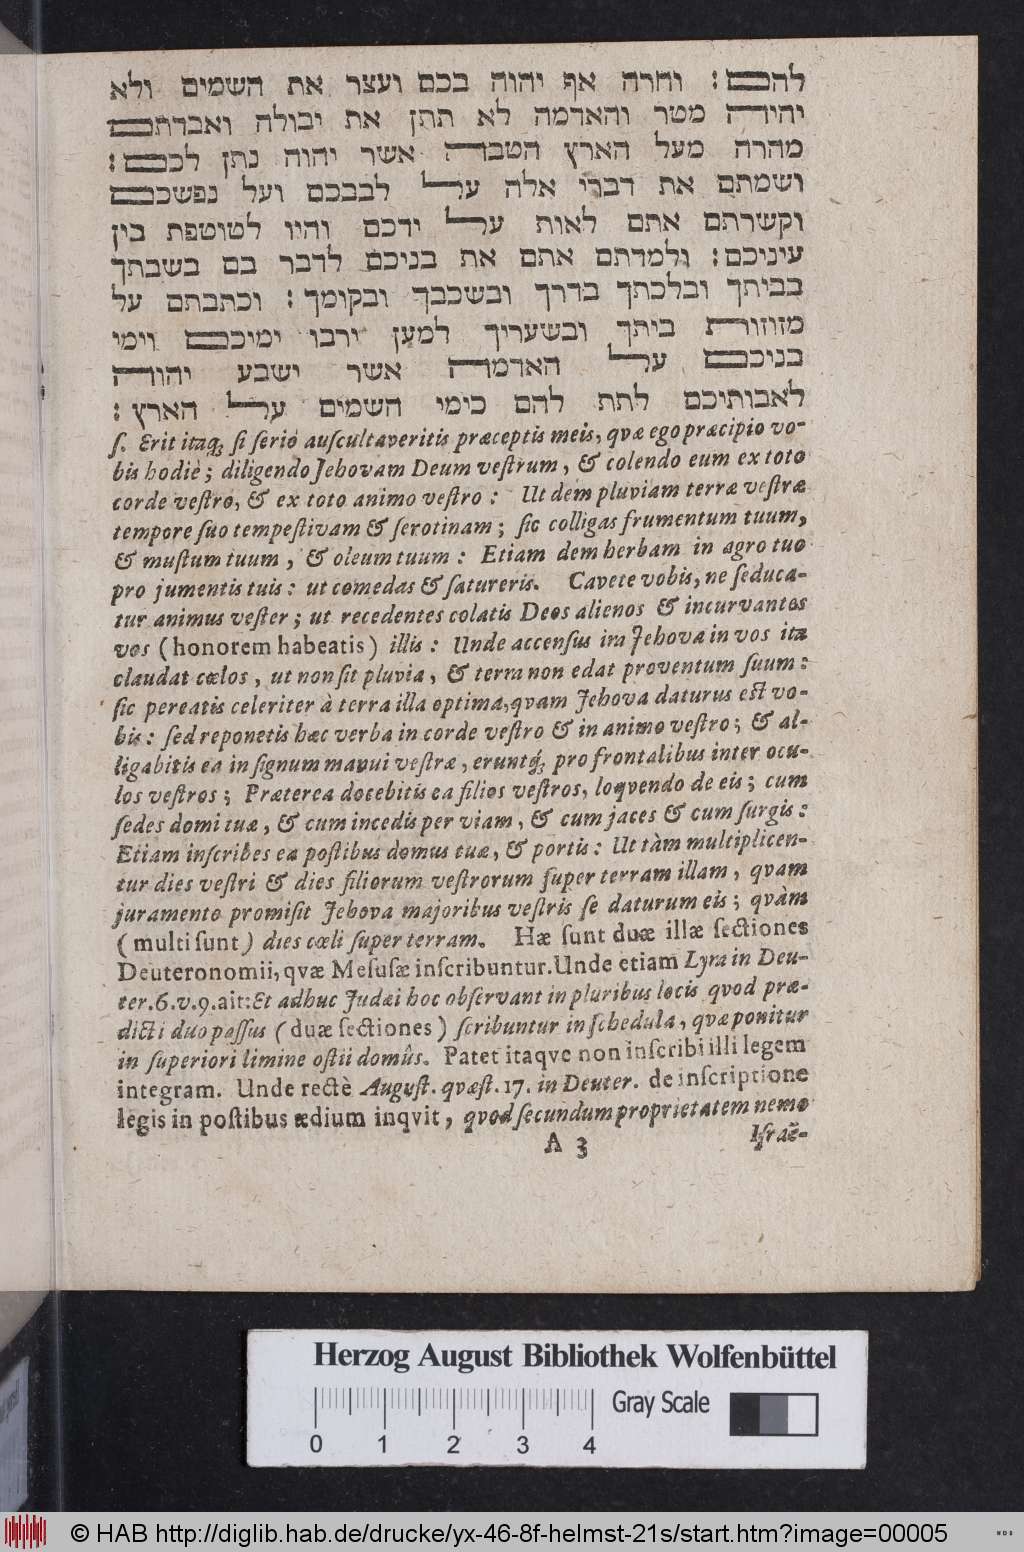 להם׃ וחרה אף יהוה בכם ועצר את השמים ולא
יהיה מטר והאדמה לא תתן את יבולה ואבדתם
מהרה מעל הארץ הטבה אשר יהוה נתן לכם׃
ושמתם את דברי אלה על לבבכם ועל נפשכם
וקשרתם אתם לאות על ידכם והיו לטוטפת בין
עיניכם׃ ולמדתם אתם את בניכם לדבר בם בשבתך
בביתך ובלכתך בדרך ובשכבך ובקומך׃ וכתבתם על
מזוזות ביתך ובשעריך למען ירבו ימיכם וימי
בניכם על האדמה אשר ישבע יהוה
לאבותיכם לתת להם כימי השמים על הארץ׃
ſ. Erit itaq; ſi ſeriò auſcultaveritis præceptis meis, qvæ ego præcipio vo-
bis hodiè; diligendo Jehovam Deum veſtrum, & colendo eum ex toto
corde veſtro, & ex toto animo veſtro: Ut dem pluviam terræ veſtræ
tempore ſuo tempeſtivam & ſerotinam; ſic colligas frumentum tuum,
& muſtum tuum, & oleum tuum: Etiam dem herbam in agro tuo
pro jumentis tuis: ut comedas & ſatureris. Cavete vobis, ne ſeduca-
tur animus veſter; ut recedentes colatis Deos alienos & incurvantes
vos (honorem habeatis) illis: Unde accenſus ira Jehova in vos ita
claudat cœlos, ut non ſit pluvia, & terra non edat proventum ſuum:
ſic pereatis celeriter à terra illa optima, qvam Jehova daturus eſt vo-
bis: ſed reponetis hæc verba in corde veſtro & in animo veſtro; & al-
ligabitis ea in ſignum manui veſtræ, eruntq; pro frontalibus inter ocu-
los veſtros; Præterea docebitis ea filios veſtros, loqvendo de eis; cum
ſedes domi tuæ, & cum incedis per viam, & cum jaces & cum ſurgis:
Etiam inſcribes ea poſtibus domus tuæ, & portis: Ut tàm multiplicen-
tur dies veſtri & dies filiorum veſtrorum ſuper terram illam, qvam
juramento promiſit Jehova majoribus veſtris ſe daturum eis; qvàm
(multi ſunt) dies cœli ſuper terram. Hæ ſunt duæ illæ ſectiones
Deuteronomii, qvæ Meſuſæ inſcribuntur. Unde etiam Lyra in Deu-
ter. 6. v. 9. ait: Et adhuc Judæi hoc obſervant in pluribus locis qvod præ-
dicti duo paſſus (duæ ſectiones) ſcribuntur in ſchedula, qvæ ponitur
in ſuperiori limine oſtii domûs. Patet itaqve non inſcribi illi legem
integram. Unde rectè Auguſt. qvæſt. 17. in Deuter. de inſcriptione
legis in poſtibus ædium inqvit, qvod ſecundum proprietatem nemo
A 3 Iſraë-
Herzog August Bibliothek Wolfenbüttel
Gray Scale
0 1 2 3 4
© HAB http://diglib.hab.de/drucke/yx-46-8f-helmst-21s/start.htm?image=00005